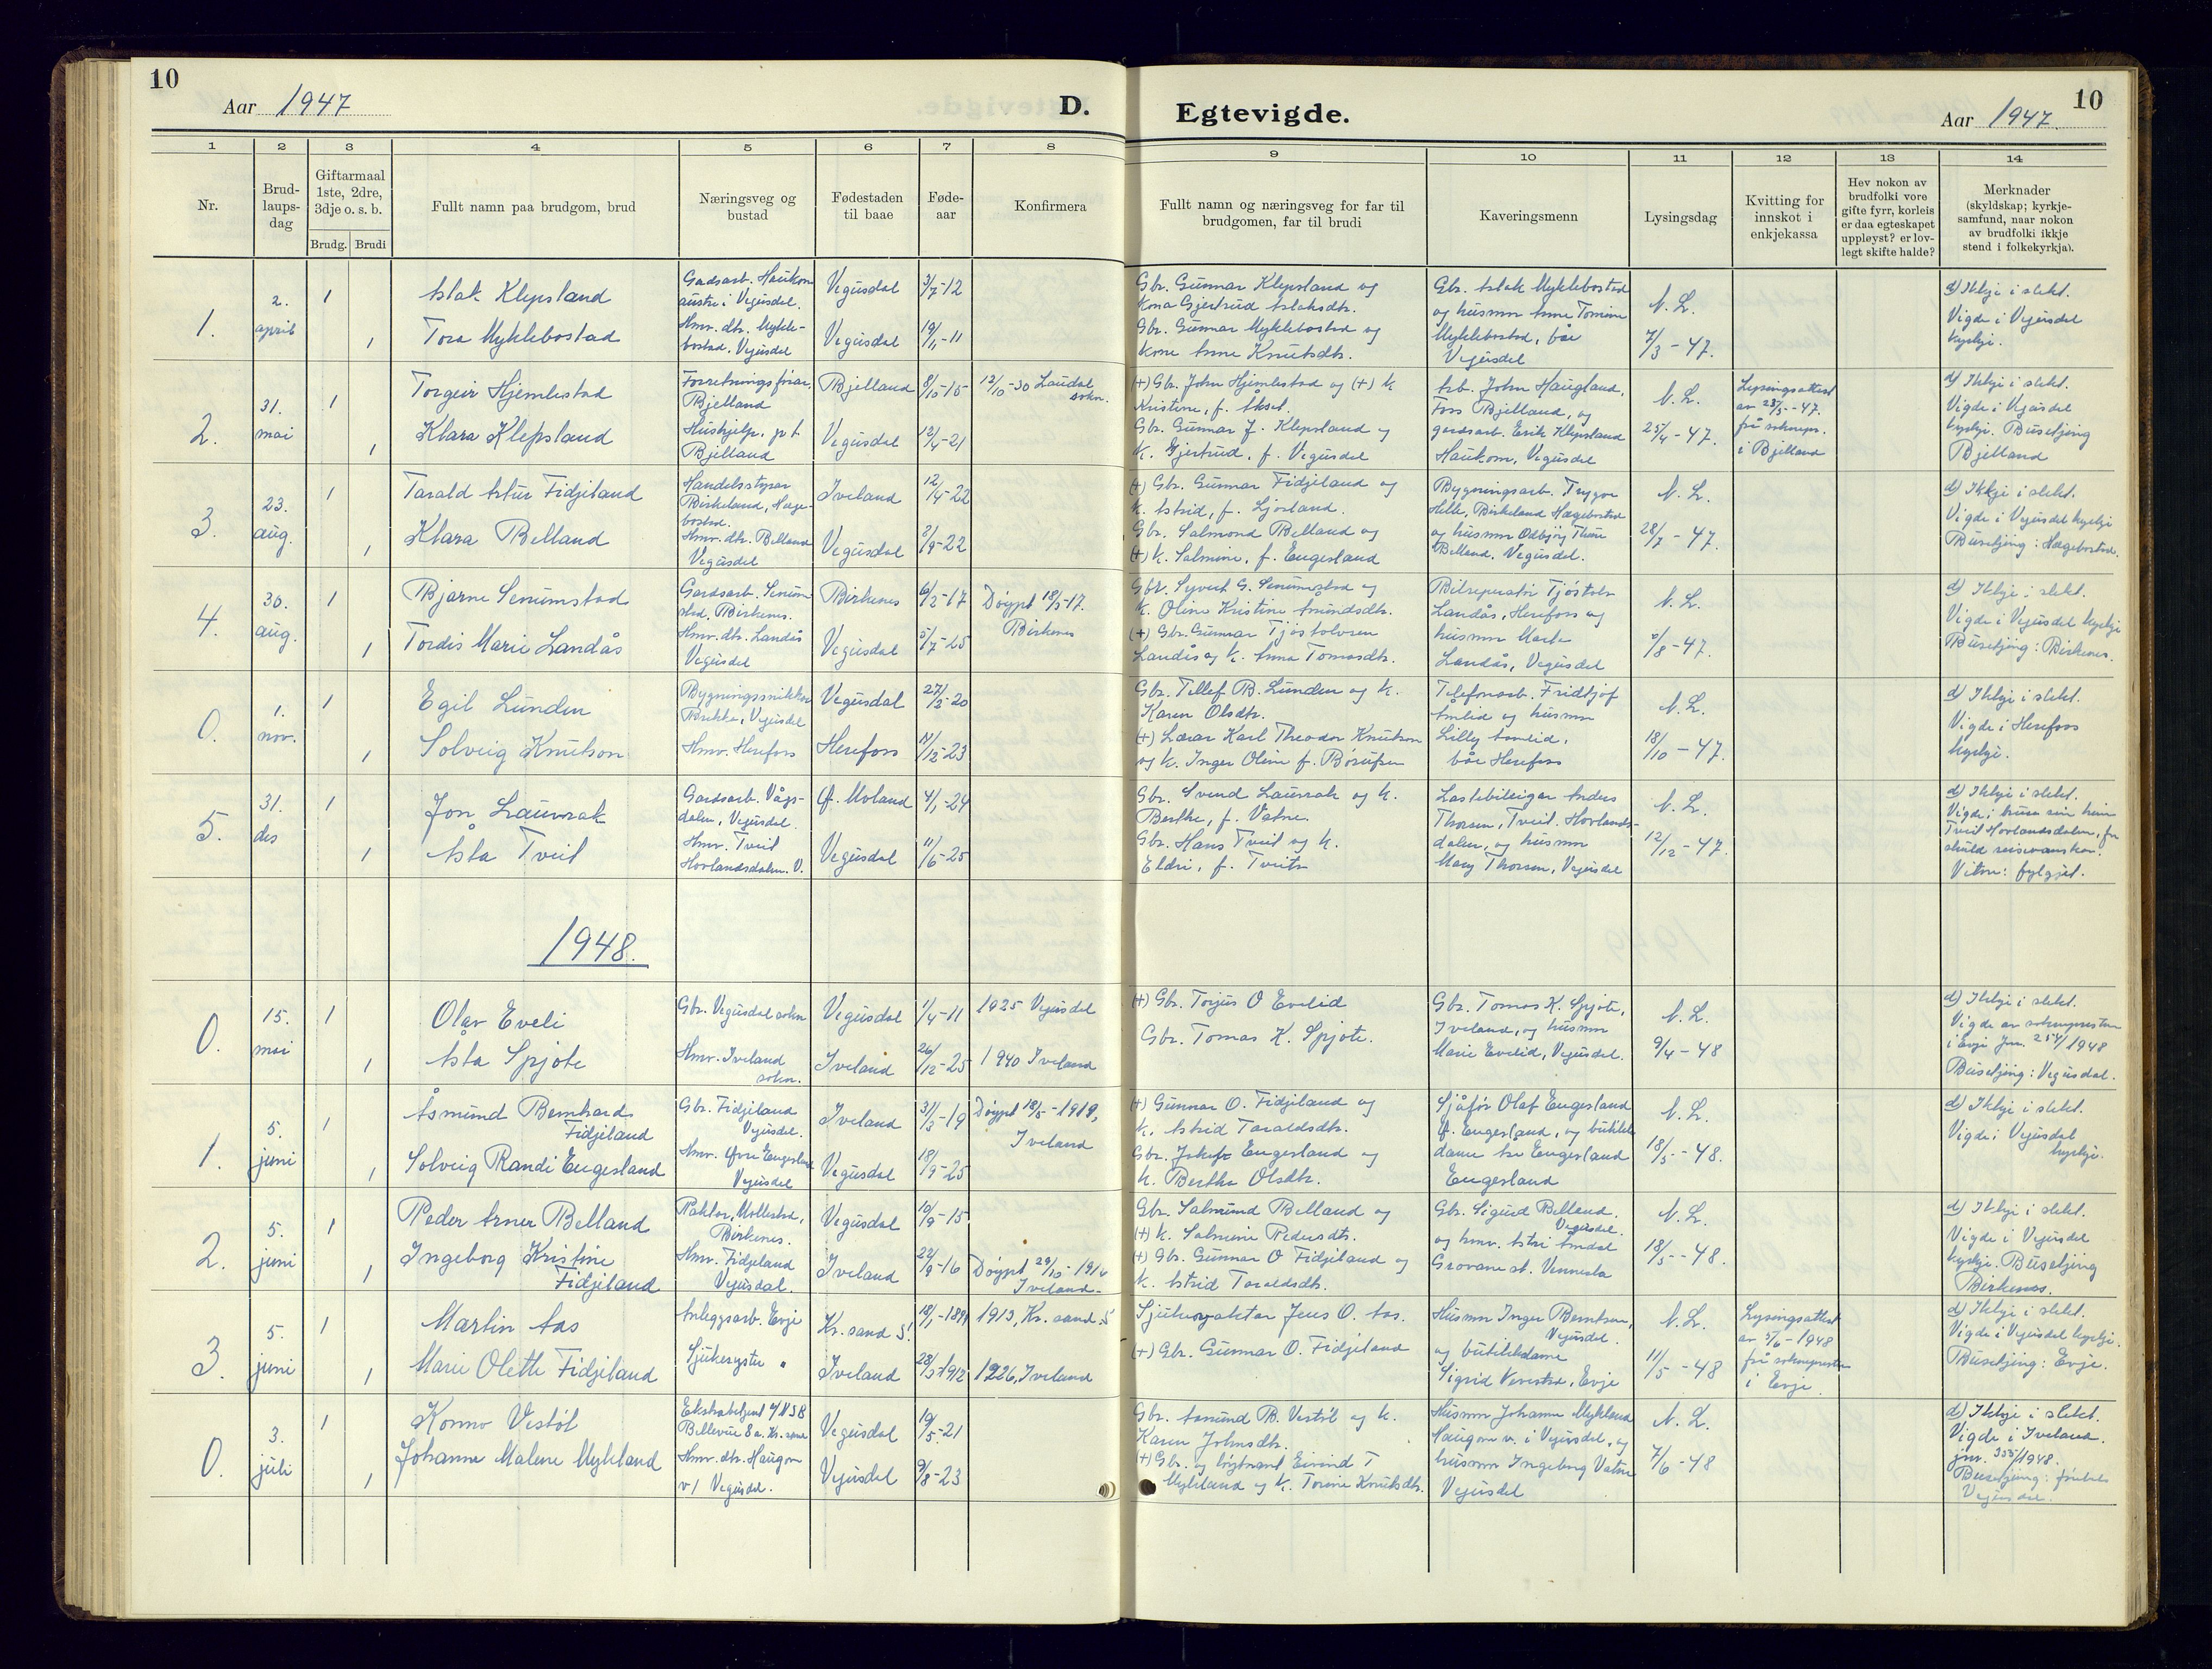 10
Aar 1947
D.
Egtevigde.
Aar 1947.
10
1 2 3 4 5 6 7 8 9 10 11 12 13 14
Nr.
Brud-
laups-
dag
Giftarmaal
1ste, 2dre,
3dje o. s. b.
Brudg. Brudi
Fullt namn paa brudgom, brud
Næringsveg og
bustad
Fødestaden
til baae
Føde-
aar
Konfirmera
Fullt namn og næringsveg for far til
brudgomen, far til brudi
Kaveringsmenn
Lysingsdag
Kvitting for
innskot i
enkjekassa
Hev nokon av
brudfolki vore
gifte fyrr, korleis
er daa egteskapet
uppløyst? er lov-
legt skifte halde?
Merknader
(skyldskap; kyrkje-
samfund, naar nokon
av brudfolki ikkje
stend i folkekyrkja).
1.
2.
april
1
1
Aslak Klepsland
Tora Myklebostad
Gardsarb. Haukom
austre i Vegusdal.
Hmv. dtr. Mykle-
bostad. Vegusdal
Vegusdal
Vegusdal
3/7-12
19/11-11
Gbr. Gunnar Klepsland og
kona Gjertrud Aslaksdtr.
Gbr. Gunnar Myklebostad og
kone Anne Knutsdtr.
Gbr. Aslak Myklebostad
og husmor Anne Tomine
Myklebostad, båe
Vegusdal
N. L.
7/3-47.
d) Ikkje i slekt.
Vigde i Vegusdal
kyrkje.
2.
31.
mai
1
1
Torgeir Hjemlestad
Klara Klepsland
Forretningsførar,
Bjelland
Hushjelp, p.t.
Bjelland
Bjelland
Vegusdal
8/10-15
12/4-21
12/10-30 Laudal
sokn.
(+) Gbr. John Hjemlestad og (+) k
Kristine, f. Aksel.
Gbr. Gunnar J. Klepsland og
k. Gjertrud, f. Vegusdal
Arb. John Haugland,
Foss Bjelland, og
gardsarb. Erik Klepsland
Haukom, Vegusdal
N. L.
25/4-47.
Lysingsattest
av 23/5-47.
frå soknepr.
i Bjelland
d) Ikkje i slekt.
Vigde i Vegusdal
kyrkje. Busetjing
Bjelland
3.
23.
aug.
1
1
Tarald Artur Fidjeland
Klara Belland
Handelsstyrar
Birkeland, Hæge-
bostad.
Hmv. dtr. Belland
Vegusdal
Iveland
Vegusdal
12/4-22
8/9-22
(+) Gbr. Gunnar Fidjeland og
k. Astrid, f. Ljosland.
Gbr. Salmond Belland og
(+) k. Salmine, f. Engesland
Bygningsarb. Trygve
Helle, Birkeland Hægebostad
og husmor Odbjørg
Belland. Vegusdal.
N. L.
28/7-47.
d) Ikkje i slekt.
Vigde i Vegusdal kyrkje
Busetjing: Hægebostad.
4.
30.
aug.
1
1
Bjarne Senumstad
Tordis Marie Landås
Gardsarb. Senum-
stad, Birkenes.
Hmv. dtr. Landås
Vegusdal
Birkenes
Vegusdal
6/2-17
5/7-25
Døypt 18/3-17.
Birkenes
Gbr. Syvert G. Senumstad og
k. Oline Kristine Amundsdtr.
(+) Gbr. Gunnar Tjøstolvsen
Landås og k. Anna Tomasdtr.
Bilreparatør Tjøstolv
Landås, Herefoss og
husmor Marta
Landås, Vegusdal
N. L.
/8-47.
d) Ikkje i slekt.
Vigde i Vegusdal kyrkje
Busetjing: Birkenes.
0.
1.
nov.
1
1
Egil Lunden
Solveig Knutson
Bygningssnikkar
Vegusdal
Hmv. Herefoss
Vegusdal
Herefoss
27/2-20
11/12-23
Gbr. Tellef B. Lunden og k.
Karen Olsdtr.
(+) Lærar Karl Theodor Knutson
og k. Inger Oline f. Børufsen
Telefonarb. Fridtjof
Åmlid og husmor
Lilly Åmlid,
båe Herefoss
N. L.
18/10-47.
d) Ikkje i slekt.
Vigde i Herefoss
kyrkje.
5.
31.
des
1
1
Jon Lauvrak
Asta Tveit
Gardsarb. Vågs-
dalen, Vegusdal.
Hmv. Tveit
Hovlandsdalen. V.
Ø. Moland
Vegusdal
4/1-24
11/6-25
Gbr. Svend Lauvrak og k.
Berthe, f. Vatne.
Gbr. Hans Tveit og k.
Eldri, f. Tveite
Lastebileigar Anders
Thorsen, Tveit. Hovlands-
dalen, og husmor
Mary Thorsen, Vegusdal
N. L.
12/12-47.
d) Ikkje i slekt.
Vigde i brura sin heim
Tveit Hovlandsdalen, for
skuld reisevanskar.
Vitne: fylgjet.
1948.
0.
15.
mai
1
1
Olav Eveli
Asta Spjote
Gbr. Vegusdal sokn
Hmv. Iveland
sokn.
Vegusdal
Iveland
1/4-11
26/12-25
1925 Vegusdal
1940 Iveland
(+) Gbr. Torjus O Evelid
Gbr. Tomas K. Spjote.
Gbr. Tomas K. Spjote,
Iveland, og husmor
Marie Evelid, Vegusdal.
N. L.
9/4-48
d) Ikkje i slekt.
Vigde av soknepresten
i Evje Jnr. 254/1948
Busetjing: Vegusdal.
1.
5.
juni
1
1
Åsmund Bernhard
Fidjeland
Solveig Randi Engesland
Gbr. Fidjeland
Vegusdal.
Hmv. Øvre Engesland
Vegusdal
Iveland
Vegusdal
31/3-19
18/9-25
Døypt 18/5-1919,
Iveland
(+) Gunnar O. Fidjeland og
k. Astrid Taraldsdtr.
Gbr. Jakob Engesland og
k. Berthe Olsdtr.
Sjåfør Olaf Engesland
Ø. Engesland, og butikk-
dame Engesland
Engesland
N. L.
18/5-48.
d) Ikkje i slekt.
Vigde i Vegusdal
kyrkje.
2.
5.
juni
1
1
Peder Arner Belland
Ingeborg Kristine
Fidjeland
Raktor, Mollestad,
Birkenes.
Hmv. Fidjeland
Vegusdal.
Vegusdal
Iveland
10/9-15
22/9-16
Døypt 29/10-1916
Iveland
Gbr. Salmund Belland og
(+) k. Salmine Pedersdtr.
(+) Gbr. Gunnar O Fidjeland og
k. Astrid Taraldsdtr.
Gbr. Sigurd Belland,
Vegusdal.
og hmv. Astri Åmdal
Grovane st. Vennesla
N. L.
18/5-48.
d) Ikkje i slekt.
Vigde i Vegusdal
kyrkje. Busetjing
Birkenes.
3.
5.
juni
1
1
Martin Aas
Marie Olette Fidjeland
Anleggsarb. Evje
Sjukesyster "
Kr.sand S.
Iveland
18/1-1899
28/3-1912
1913, Kr. sand. S
1926, Iveland
Sjukevaktar Jens O. Aas.
(+) Gbr. Gunnar O. Fidjeland
Husmor Inger Berntsen,
Vegusdal.
og butikkdame
Sigrid Verestad, Evje
N. L.
11/5-48
Lysingsattest
av 5/6-1948
frå soknepresten
i Evje.
d) Ikkje i slekt.
Vigde i Vegusdal kyrkje.
Busetjing: Evje.
0.
3.
juli
1
1
Konno Vestøl
Johanne Malene Mykland
Ekstrabetjent v/NSB
Bellevue 8a. Kr. sand
Hmv. dtr. Haugom
v/ Vegusdal.
Vegusdal
Vegusdal
19/5-21
9/8-23
Gbr. Åsmund B. Vestøl og k.
Karen Johnsdtr.
(+) Gbr. og Eivind T
Mykland og k. Torine Knutsdtr.
Husmor Johanne Mykland
Haugom v. i Vegusdal, og
husmor Ingeborg Vatne
Vegusdal
N. L.
7/6-48
d) Ikkje i slekt.
Vigde i Iveland.
jnr. 355/1948.
Busetjing:
Vegusdal.